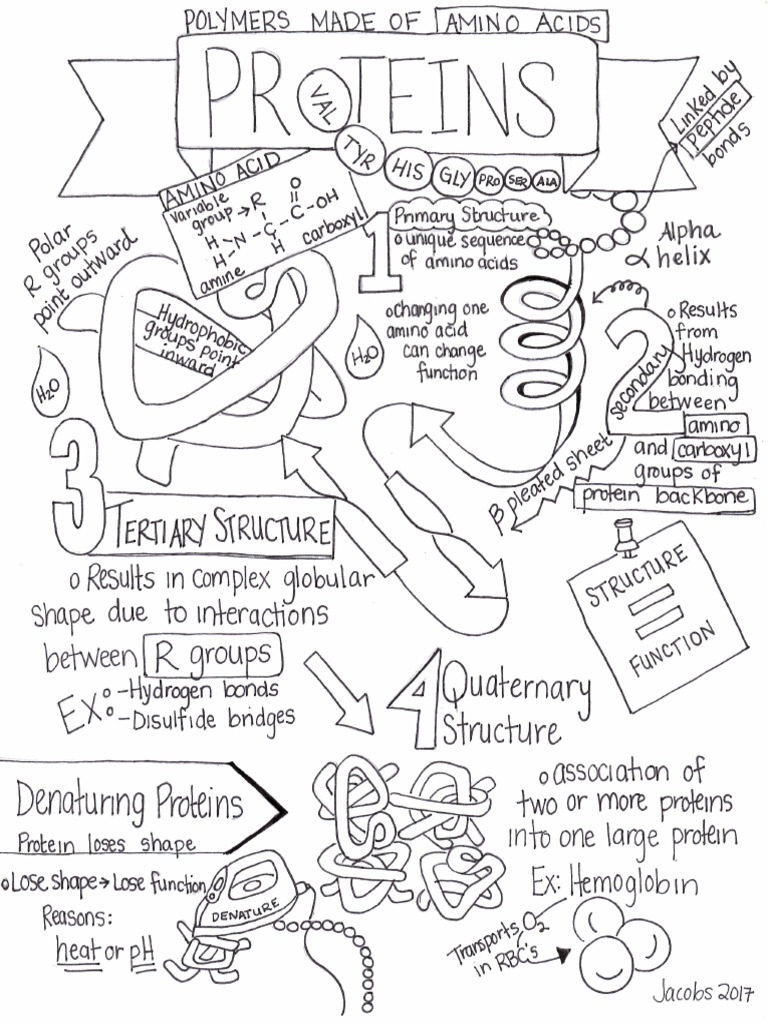 POLYMERS MADE OF AMINO ACIDS
PROTEINS
VAL
TYR
HIS
GLY
PRO
SER
ALA
Linked by
peptide
bonds
AMINO ACID
variable
group → R
O
H
N - C - C - OH
H
H
amine
carboxyl
1
Primary Structure
o unique sequence
of amino acids
o Changing one
amino acid
can change
function
H2O
Alpha
α helix
2
secondary
o Results
from
Hydrogen
bonding
between
amino
and carboxyl
groups of
protein backbone
β pleated sheet
Polar
R groups
point outward
Hydrophobic
groups point
inward
H2O
3
TERTIARY STRUCTURE
o Results in complex globular
shape due to interactions
between R groups
EX: - Hydrogen bonds
- Disulfide bridges
STRUCTURE
=
FUNCTION
4 Quaternary
Structure
o association of
two or more proteins
into one large protein
Ex: Hemoglobin
Transports O2
in RBC's
Denaturing Proteins
Protein loses shape
o Lose shape → Lose function
Reasons:
heat or pH
DENATURE
Jacobs 2017